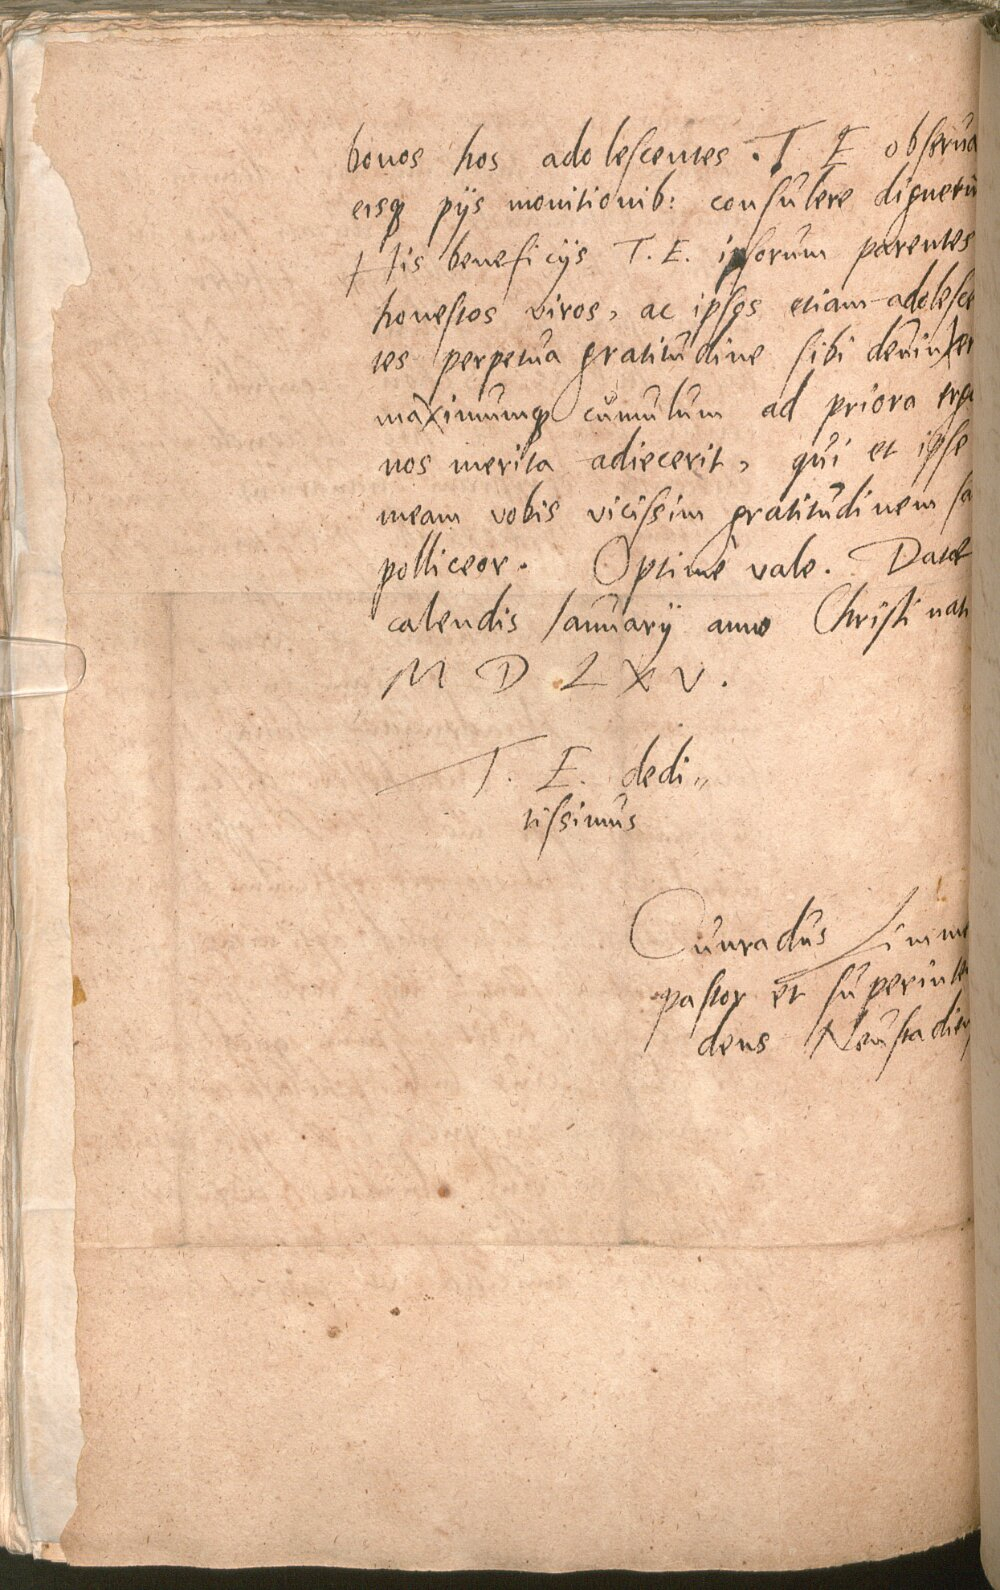 bonos hos adolescentes . T E obserua
eisq pijs monitionib: consulere dignetu
His beneficijs T. E. ipsorum parentes
honestos viros, ac ipsos etiam adolesce
tes perpetua gratitudine sibi deuinxer
maximumq cumulum ad priora erga
nos merita adiecerit, qui et ipse
meam vobis vicissim gratitudinem sa
polliceor. Optime vale. Datae
calendis Ianuarij anno Christi nati
M D L X V.
T. E. dedi„
tissimus
Cunradus Limme
pastor et superinten
dens Neustadien